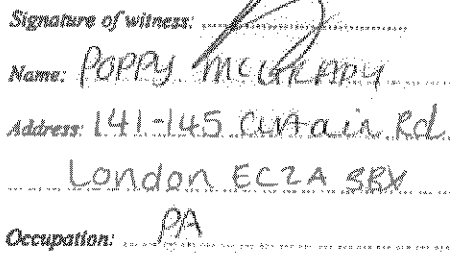 Signature of witness:
Name: POPPY MCGREADY
Address: 141-145 Curtain Rd
London EC2A 3BX
Occupation: PA